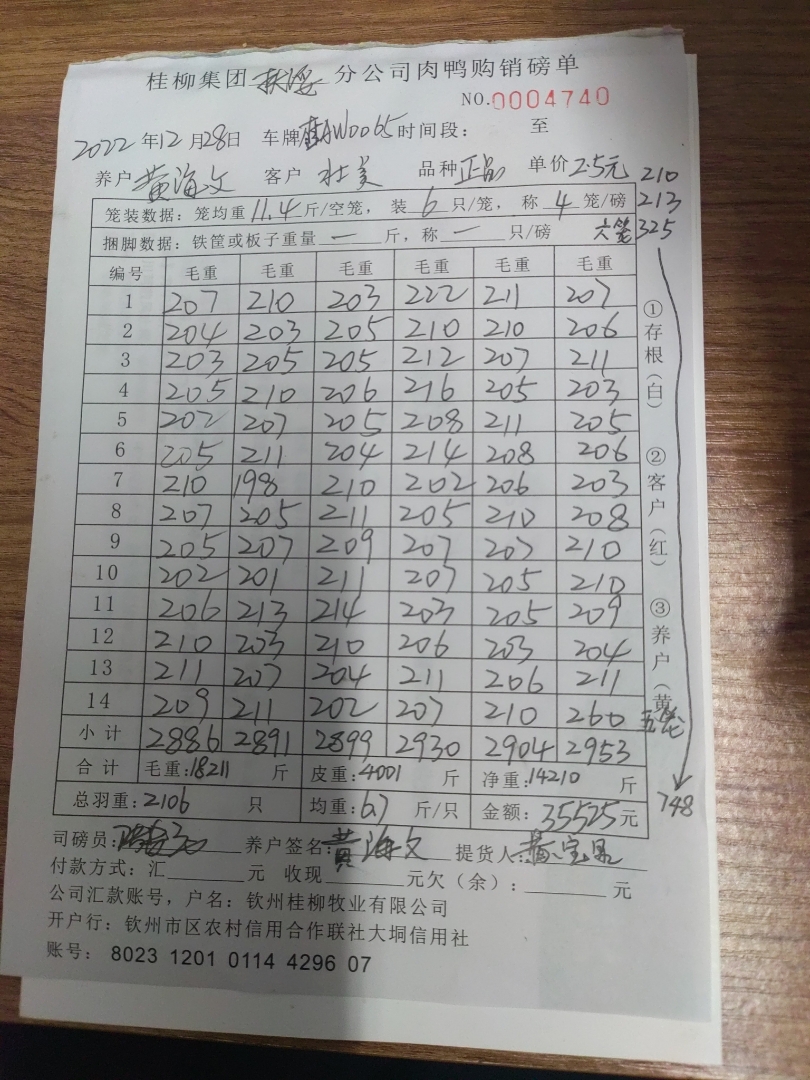 桂柳集团 扶绥 分公司肉鸭购销磅单
NO.0004740
2022 年 12 月 28 日 车牌 AW0065 时间段： 至
养户 黄海文 客户 杜美 品种 正品 单价 2.5元 210
笼装数据：笼均重 11.4 斤/空笼，装 6 只/笼，称 4 笼/磅 213
捆脚数据：铁筐或板子重量 一 斤，称 一 只/磅 六笼 325
编号 毛重 毛重 毛重 毛重 毛重 毛重
1 207 210 203 222 211 207
2 204 203 205 210 210 206
3 203 205 205 212 207 211
4 205 210 206 216 205 203
5 202 207 205 208 211 205
6 205 211 204 214 208 206
7 210 198 210 202 206 203
8 207 205 211 205 210 208
9 205 207 209 207 207 210
10 202 201 211 207 205 210
11 206 213 214 203 205 209
12 210 203 210 206 203 204
13 211 207 204 211 206 211
14 209 211 202 207 210 260 五笼
小计 2886 2891 2899 2930 2904 2953
合计 毛重：18211 斤 皮重：4001 斤 净重：14210 斤
总羽重：2106 只 均重：6.7 斤/只 金额：35525 元 748
①存根（白） ②客户（红） ③养户（黄
司磅员： 养户签名：黄海文 提货人：
付款方式：汇 元 收现 元欠（余）： 元
公司汇款账号，户名：钦州桂柳牧业有限公司
开户行：钦州市区农村信用合作联社大垌信用社
账号： 8023 1201 0114 4296 07